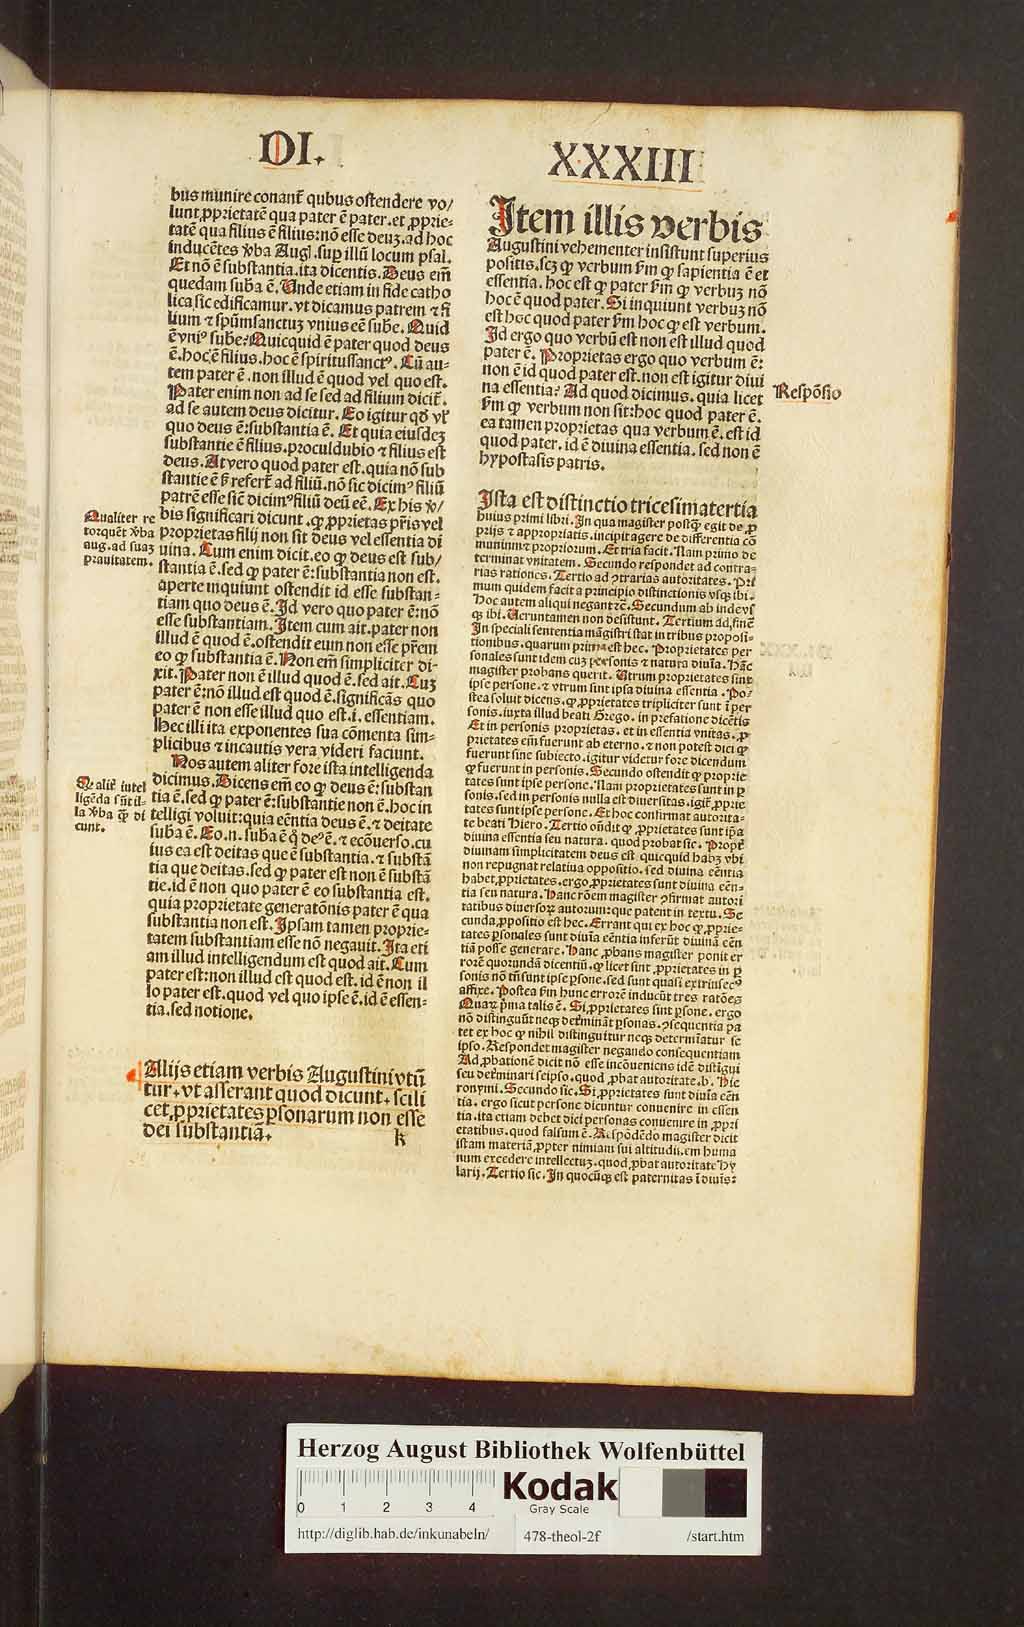 DI.
XXXIII
bus munire conant̃ qubus ostendere vo/
lunt ꝓprietatē qua pater ē pater. et ꝓprie-
tatē qua filius ē filius: nō esse deuꝫ. ad hoc
inducētes v̄ba Augꝭ. suꝑ illū locum psal.
Et nō ē substantia. ita dicentis. Deus em̄
quedam suba ē. Unde etiam in fide catho
lica sic edificamur. vt dicamus patrem ⁊ fi
lium ⁊ spūmsanctuꝫ vnius eē sube. Quid
ē vniꝰ sube? Quicquid ē pater quod deus
ē. hoc ē filius. hoc ē spiritussanctꝰ. Cū au-
tem pater ē. non illud ē quod vel quo est.
Pater enim non ad se sed ad filium dicit̃.
ad se autem deus dicitur. Eo igitur qď vr̄
quo deus ē: substantia ē. Et quia eiusdeꝫ
substantie ē filius. proculdubio ⁊ filius est
deus. At vero quod pater est. quia nō sub
stantie ē ẜ refert̃ ad filiū. nō sic dicimꝰ filiū
patrē esse sic̄ dicimꝰ filiū deū eē. Ex his v̄/
bis significari dicunt. ꝙ ꝓprietas pr̄is vel
proprietas filij non sit deus vel essentia di
uina. Cum enim dicit. eo ꝙ deus est sub/
stantia ē. sed ꝙ pater ē: substantia non est.
aperte inquiunt ostendit id esse substan-
tiam quo deus ē. Id vero quo pater ē: nō
esse substantiam. Item cum ait. pater non
illud ē quod ē. ostendit eum non esse pr̄em
eo ꝙ substantia ē. Non em̄ simpliciter di-
xit. Pater non ē illud quod ē. sed ait. Cuꝫ
pater ē: nō illud est quod ē. significās quo
pater ē non esse illud quo est. i. essentiam.
Hec illi ita exponentes sua cōmenta sim-
plicibus ⁊ incautis vera videri faciunt.
Nos autem aliter fore ista intelligenda
dicimus. Dicens em̄ eo ꝙ deus ē: substan
tia ē. sed ꝙ pater ē: substantie non ē. hoc in
telligi voluit: quia eēntia deus ē. ⁊ deitate
suba ē. Eo. n. suba ē q̄ deꝰ ē. ⁊ ecōuerso. cu
ius ea est deitas que ē substantia. ⁊ substā
tia que deitas. sed ꝙ pater est non ē substā
tie. id ē non quo pater ē eo substantia est.
quia proprietate generatōnis pater ē qua
substantia non est. Ipsam tamen proprie-
tatem substantiam esse nō negauit. Ita eti
am illud intelligendum est quod ait. Cum
pater est: non illud est quod est. id ē non il
lo pater est. quod vel quo ipse ē. id ē essen-
tia. sed notione.
Alijs etiam verbis Augustini vtū
tur. vt asserant quod dicunt. scili
cet ꝓprietates ꝑsonarum non esse
dei substantiā.
k
Qualiter re
torquēt v̄ba
aug. ad suaꝫ
prauitatem.
Qualiť intel
ligēda sūt il-
la v̄ba ꝙ di
cunt.
Item illis verbis
Augustini vehementer insistunt superius
positis. scꝫ ꝙ verbum ẜm ꝙ sapientia ē et
essentia. hoc est ꝙ pater ẜm ꝙ verbuꝫ nō
hoc ē quod pater. Si inquiunt verbuꝫ nō
est hoc quod pater ẜm hoc ꝙ est verbum.
Id ergo quo verbū est non est illud quod
pater ē. Proprietas ergo quo verbum ē:
non ē id quod pater est. non est igitur diui
na essentia? Ad quod dicimus. quia licet
ẜm ꝙ verbum non sit: hoc quod pater ē.
ea tamen proprietas qua verbum ē. est id
quod pater. id ē diuina essentia. sed non ē
hypostasis patris.
Respōsio
Ista est distinctio tricesimatertia
huius primi libri. In qua magister postꝗ̄ egit de ꝓ
prijs ⁊ appropriatis. incipit agere de differentia cō
munium ⁊ propriorum. Et tria facit. Nam primo de
terminat vnitatem. Secundo respondet ad contra-
rias rationes. Tertio ad ꝯtrarias autoritates. Pri
mum quidem facit a principio distinctionis vsqꝫ ibi.
Hoc autem aliqui negant rē. Secundum ab inde vs
qꝫ ibi. Ueruntamen non desistunt. Tertium ad finē
In speciali sententia magistri stat in tribus proposi-
tionibus. quarum prima est hec. Proprietates per
sonales sunt idem cuꝫ personis ⁊ natura diuīa. Hāc
magister probans querit. Utrum proprietates sint
ipse persone. ⁊ vtrum sint ipsa diuina essentia. Po/
stea soluit dicens. ꝙ ꝓprietates tripliciter sunt ī per
sonis. iuxta illud beati Grego. in prefatione dicētis
Et in personis proprietas. et in essentia vnitas. ꝓ
prietates em̄ fuerunt ab eterno. ⁊ non potest dici ꝙ
fuerunt sine subiecto. igitur videtur fore dicendum
ꝙ fuerunt in personis. Secundo ostendit ꝙ proprie
tates sunt ipse persone. Nam proprietates sunt in ꝑ
sonis. sed in personis nulla est diuersitas. igit̃ ꝓprie
tates sunt ipse persone. Et hoc confirmat autorita-
te beati Hiero. Tertio oñdit ꝙ ꝓprietates sunt ip̄a
diuina essentia seu natura. quod probat sic. Propt̄
diuinam simplicitatem deus est quicquid habꝫ vbi
non repugnat relatiua oppositio. sed diuina eēntia
habet ꝓprietates. ergo ꝓprietates sunt diuina eēn-
tia seu natura. Hanc rōem magister ꝯfirmat autori
tatibus diuersoꝝ autorum: que patent in textu. Se
cunda ꝓpositio est hec. Errant qui ex hoc ꝙ ꝓprie-
tates ꝑsonales sunt diuīa eēntia inferūt diuinā eēn
tiā posse generare. Hanc ꝓbans magister ponit er
rorē quorundā dicentiū. ꝙ licet sunt ꝓprietates in ꝑ
sonis nō tn̄ sunt ipse ꝑsone. sed sunt quasi extrinsecꝰ
affixe. Postea ẜm hunc errorē inducūt tres ratōes
Quaꝝ pͥma talis ē. Si ꝓprietates sint ꝑsone. ergo
nō distinguūt neqꝫ detẽrminãt ꝑsonas. ꝯsequentia pa
tet ex hoc ꝙ nihil distinguitur neqꝫ determīatur se
ipso. Respondet magister negando consequentiam
Ad ꝓbationē dicit nō esse incōueniens idē distīgui
seu determinari seipso. quod ꝓbat autoritate. b. Hie
ronymi. Secundo sic. Si ꝓprietates sunt diuīa eēn
tia. ergo sicut persone dicuntur conuenire in essen
tia. ita etiam debet dici personas conuenire in ꝓpri
etatibus. quod falsum ē. Respōdēdo magister dicit
istam materiā ꝓpter nimiam sui altitudinem huma
num excedere intellectuꝫ. quod ꝓbat autoritate Hy
larij. Tertio sic. In quocūqꝫ est paternitas ī diuīs:
Herzog August Bibliothek Wolfenbüttel
0 1 2 3 4
Kodak
Gray Scale
http://diglib.hab.de/inkunabeln/
478-theol-2f
/start.htm